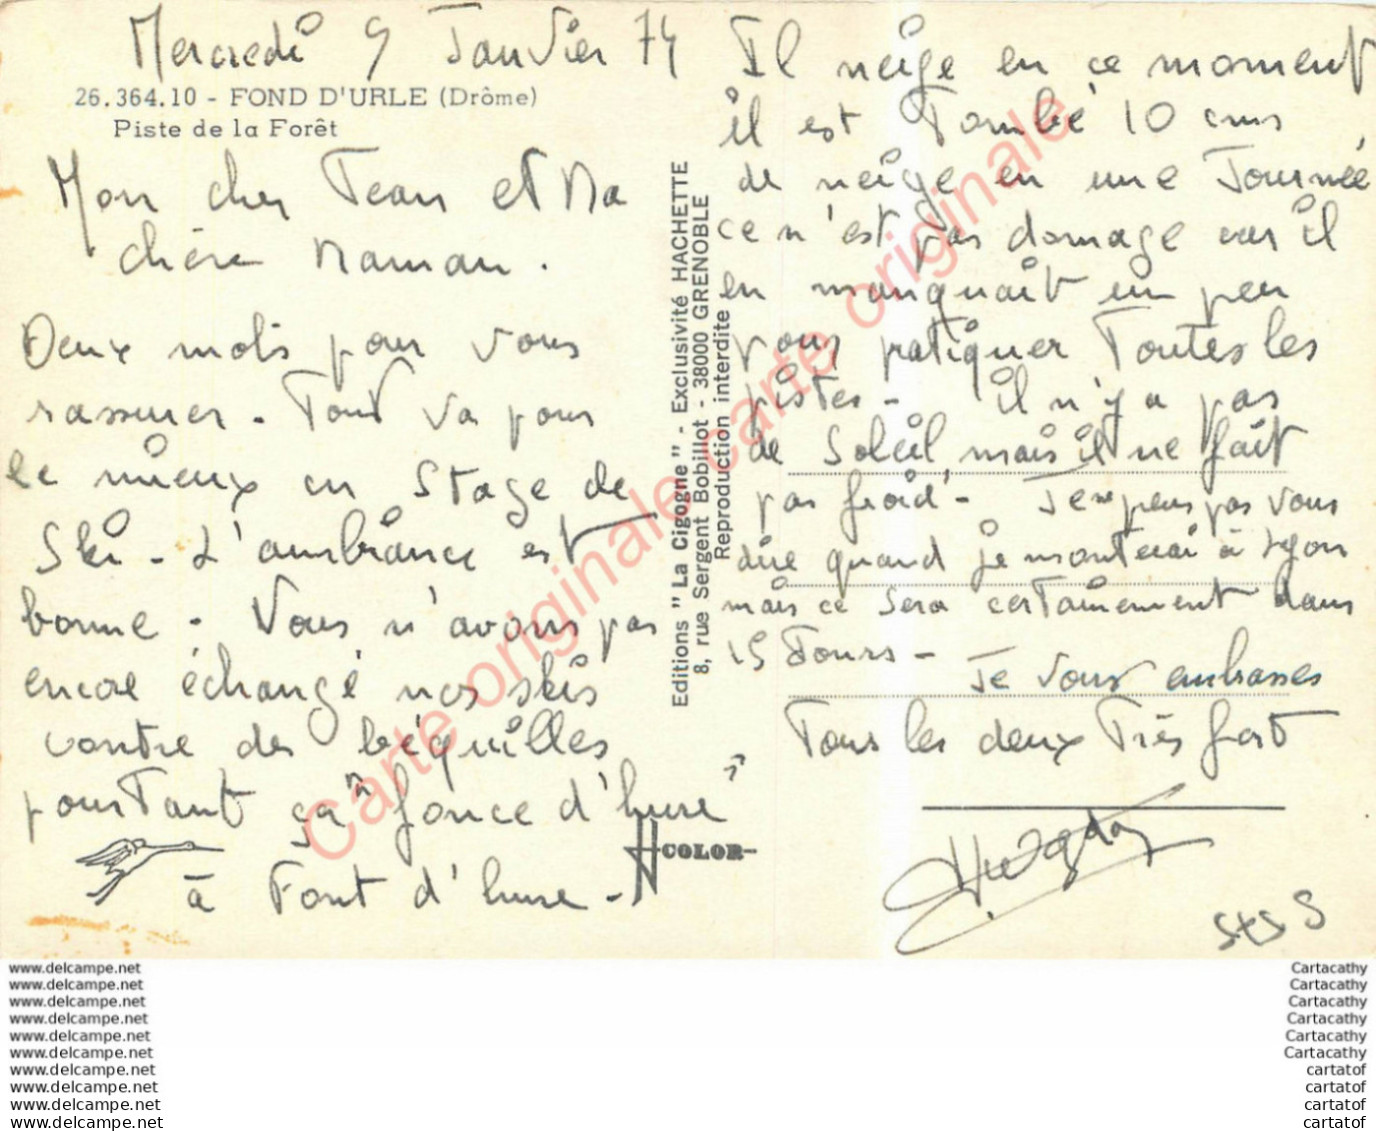 Mercredi 9 Janvier 74
26.364.10 - FOND D'URLE (Drôme)
Piste de la Forêt
Mon cher Jean et Ma
chère Maman.
Deux mots pour vous
rassurer - Tout va pour
le mieux en Stage de
Ski - L'ambiance est
bonne - Nous n'avons pas
encore échangé nos skis
contre des béquilles
pourtant ça "fonce d'hure"
à Font d'hure -
Editions "La Cigogne" - Exclusivité HACHETTE
8, rue Sergent Bobillot - 38000 GRENOBLE
Reproduction interdite
COLOR
Il neige en ce moment
il est Tombé 10 cms
de neige en une Journée
ce n'est pas domage car il
en manquait un peu
pour pratiquer Toutes les
pistes - il n'y a pas
de Soleil mais il ne fait
pas froid - Je ne peux pas vous
dire quand je monterai à Lyon
mais ce sera certainement dans
15 Jours - Je vous embrasses
Tous les deux Très fort
Carte originale carte originale
www.delcampe.net
www.delcampe.net
www.delcampe.net
www.delcampe.net
www.delcampe.net
www.delcampe.net
www.delcampe.net
www.delcampe.net
www.delcampe.net
www.delcampe.net
Cartacathy
Cartacathy
Cartacathy
Cartacathy
Cartacathy
Cartacathy
cartatof
cartatof
cartatof
cartatof